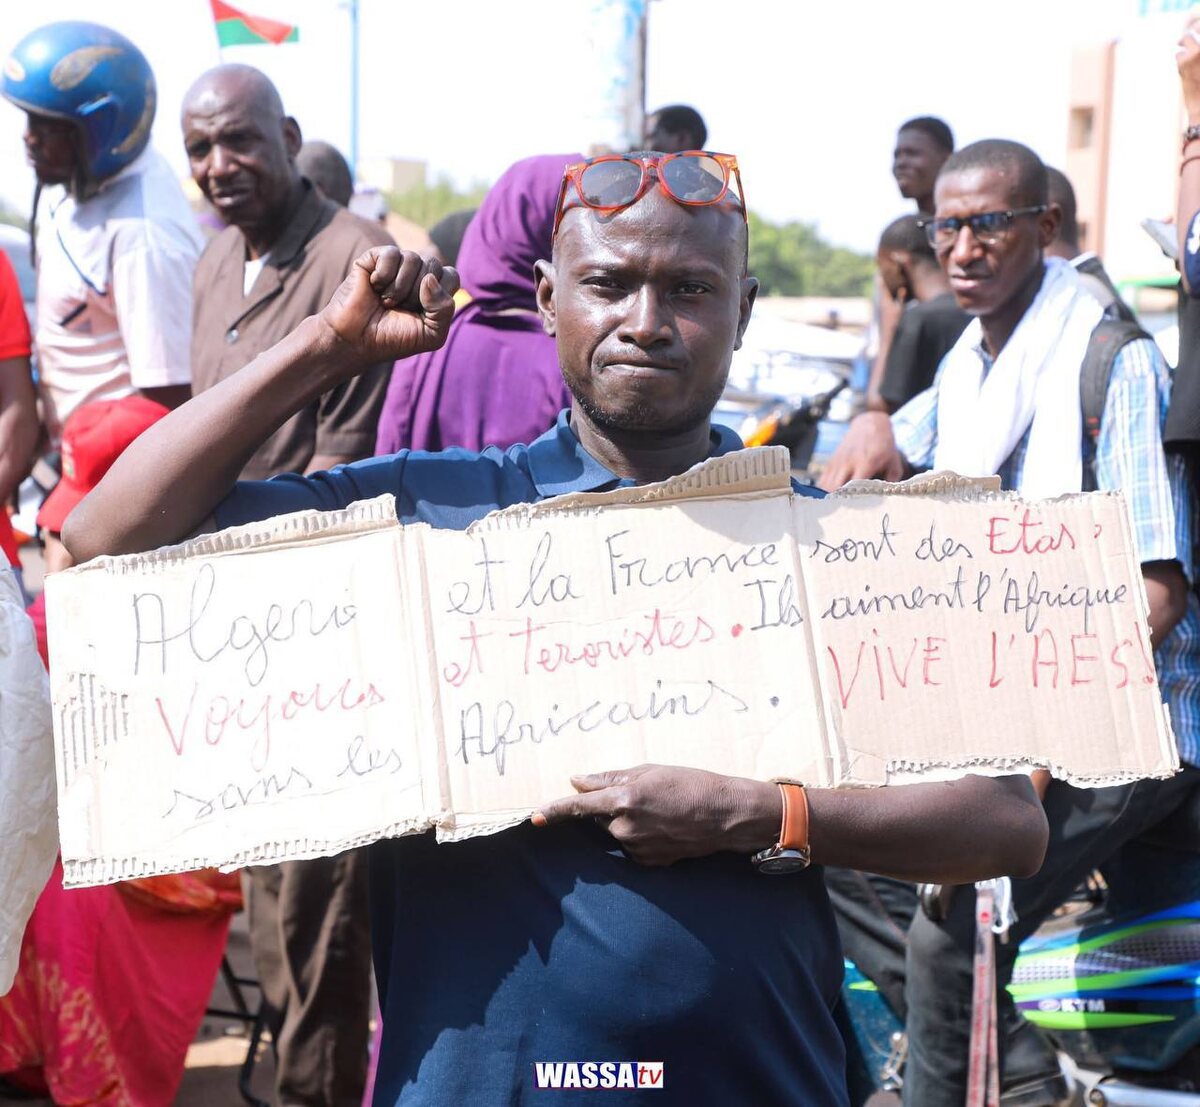 Algerie et la France sont des Etas,
Voyoucs et teroristes. Ils aiment l'Afrique
sans les Africains. VIVE L'AES!
KTM
WASSAtv